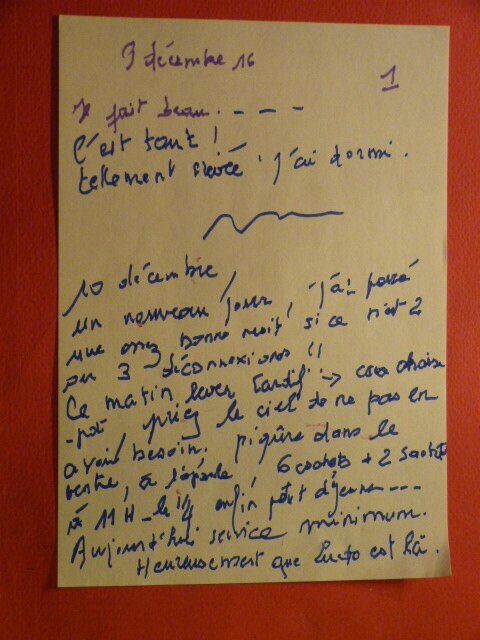 9 décembre 16
1
Il fait beau. - - - -
C'est tout !
tellement crevée j'ai dormi.
10 décembre,
un nouveau jour, j'ai passé
une assez bonne nuit si ce n'est 2
ou 3 déconnexions !!
Ce matin lever tardif → casa chaise
-pot, priez le ciel de ne pas en
avoir besoin. piqûre dans le
ventre, à l'épaule, 6 cachets + 2 sachets
à 11 H - le 1/4 enfin petit déjeuner - - -
Aujourd'hui service minimum.
Heureusement que est là.